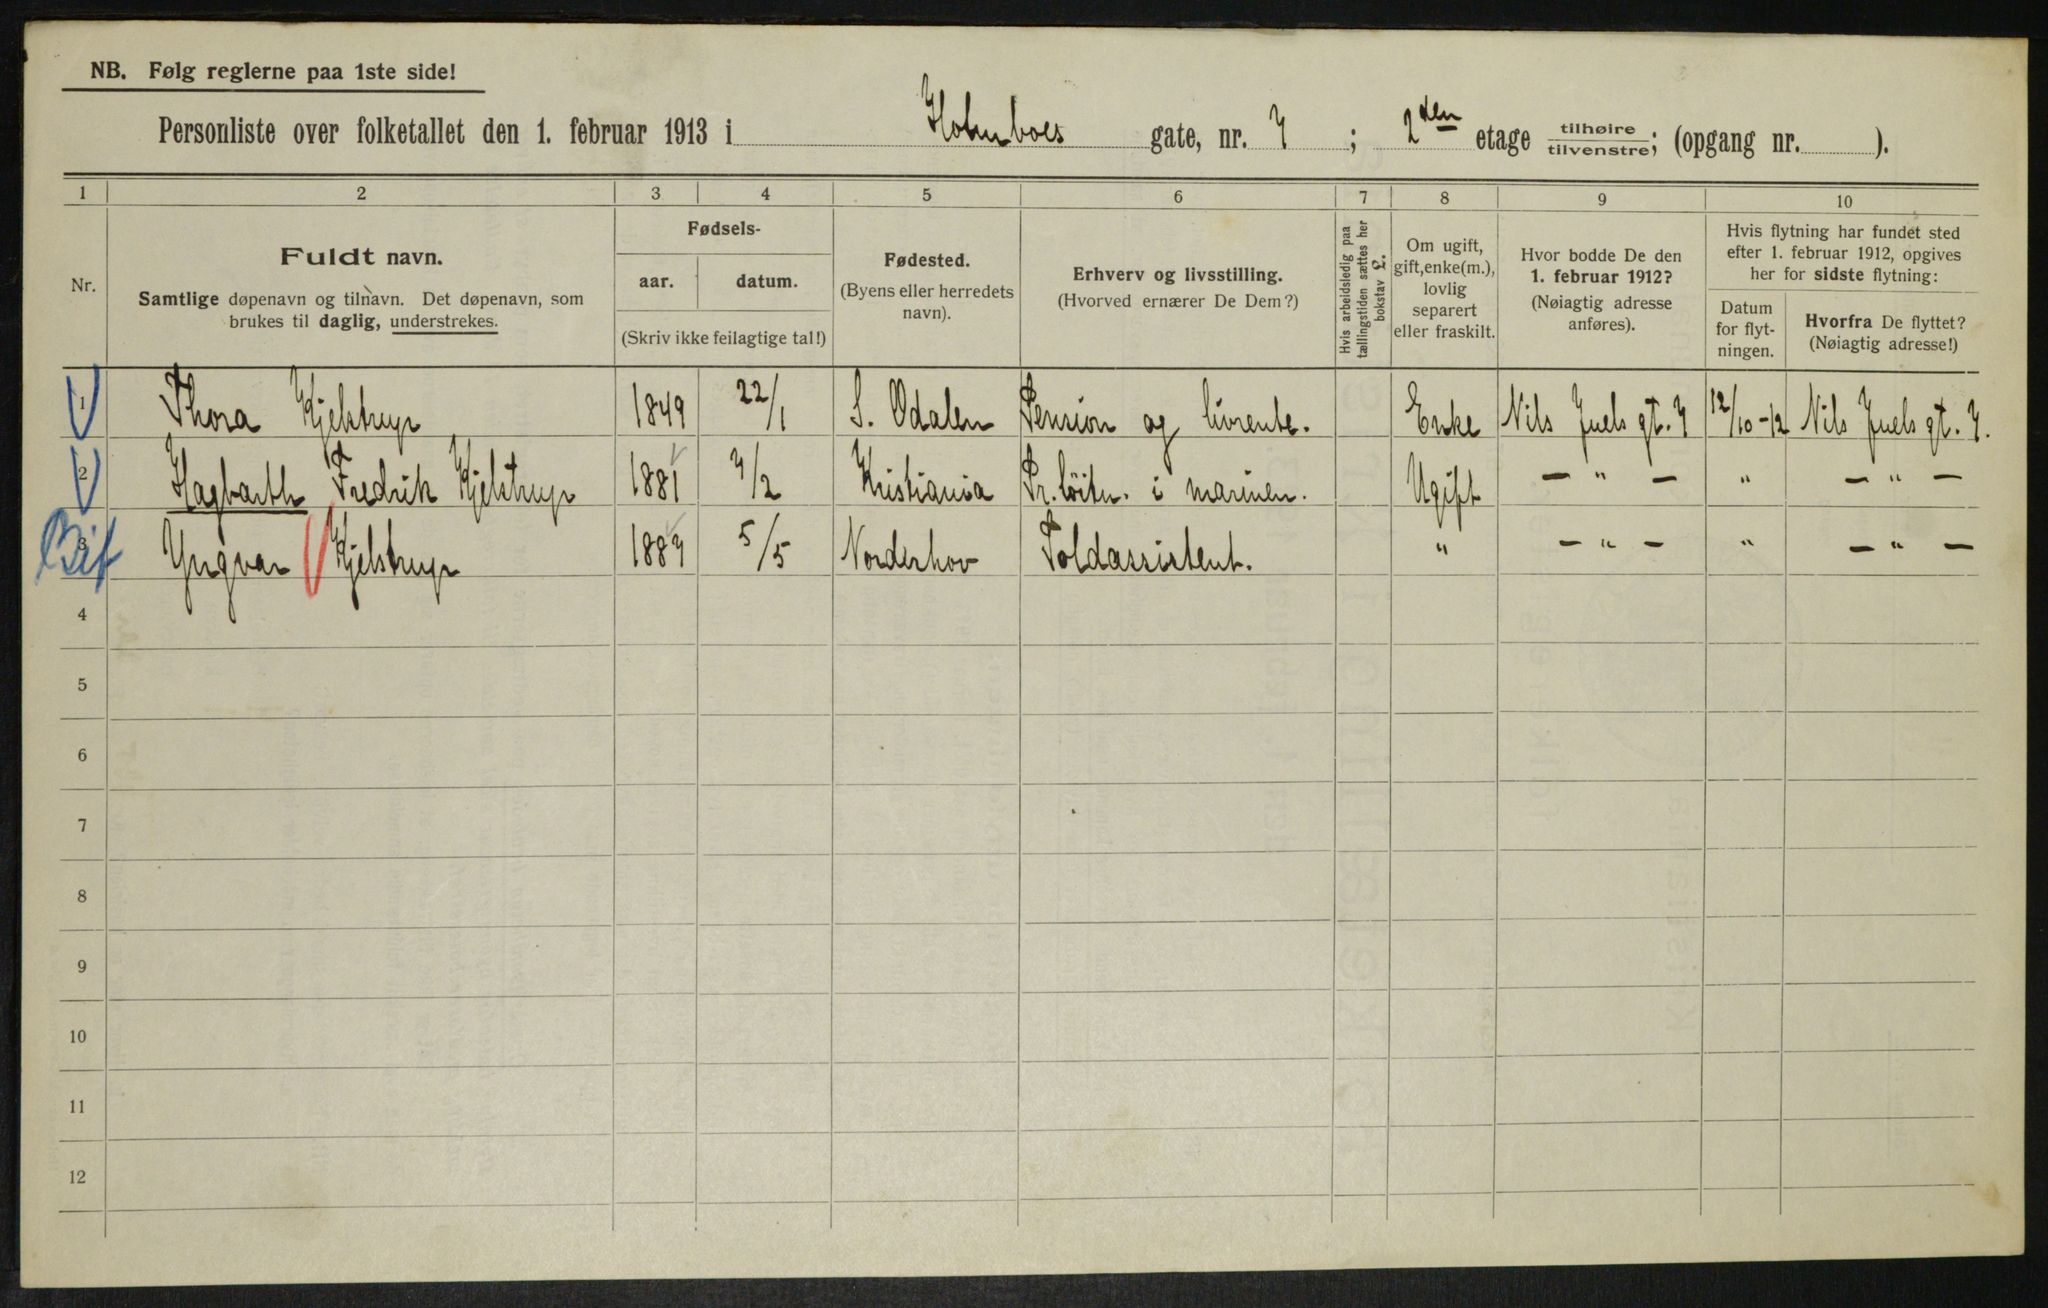 NB. Følg reglerne paa 1ste side!
Personliste over folketallet den 1. februar 1913 i Holmboes gate, nr. 7 ; 2den etage tilhøire tilvenstre; (opgang nr. ).
1 2 3 4 5 6 7 8 9 10
Nr.
Fuldt navn.
Samtlige døpenavn og tilnavn. Det døpenavn, som
brukes til daglig, understrekes.
Fødsels-
aar. datum.
(Skriv ikke feilagtige tal!)
Fødested.
(Byens eller herredets
navn).
Erhverv og livsstilling.
(Hvorved ernærer De Dem?)
Hvis arbeidsledig paa
tællingstiden sættes her
bokstav L.
Om ugift,
gift, enke(m.),
lovlig
separert
eller fraskilt.
Hvor bodde De den
1. februar 1912?
(Nøiagtig adresse
anføres).
Hvis flytning har fundet sted
efter 1. februar 1912, opgives
her for sidste flytning:
Datum
for flyt-
ningen.
Hvorfra De flyttet?
(Nøiagtig adresse!)
1 Thora Kjelstrup 1849 22/1 S. Odalen Pension og livrente. Enke Nils Juels gt. 7 12/10-12 Nils Juels gt. 7.
2 Hagbarth Fredrik Kjelstrup 1881 7/2 Kristiania Pr. löitn. i marinen. Ugift — " — " — " —
3 Bif Yngvar Kjelstrup 1887 5/5 Norderhov Toldassistent. " — " — " — " —
4
5
6
7
8
9
10
11
12